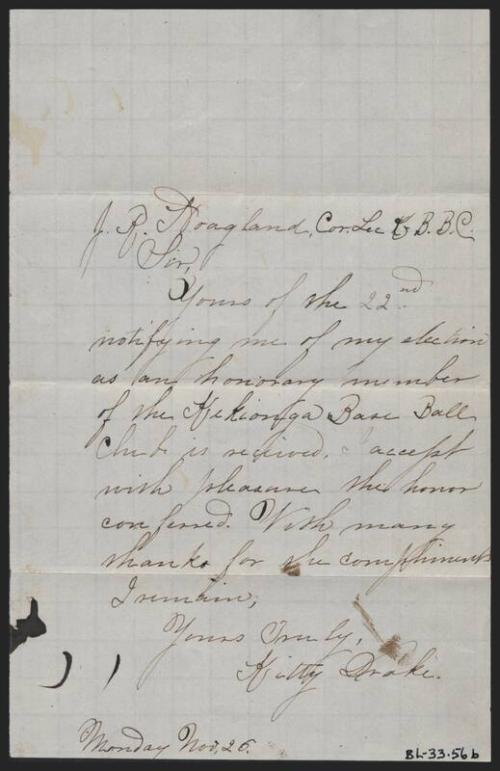 J. R. Hoagland, Cor. Sec K. B. B. C.
Sir,
Yours of the 22nd
notifying me of my election
as an honorary member
of the Kekionga Base Ball
Club is received. I accept
with pleasure the honor
conferred. With many
thanks for the compliments
I remain,
Yours Truly,
Kitty Drake.
Monday Nov, 26.
BL-33.56b